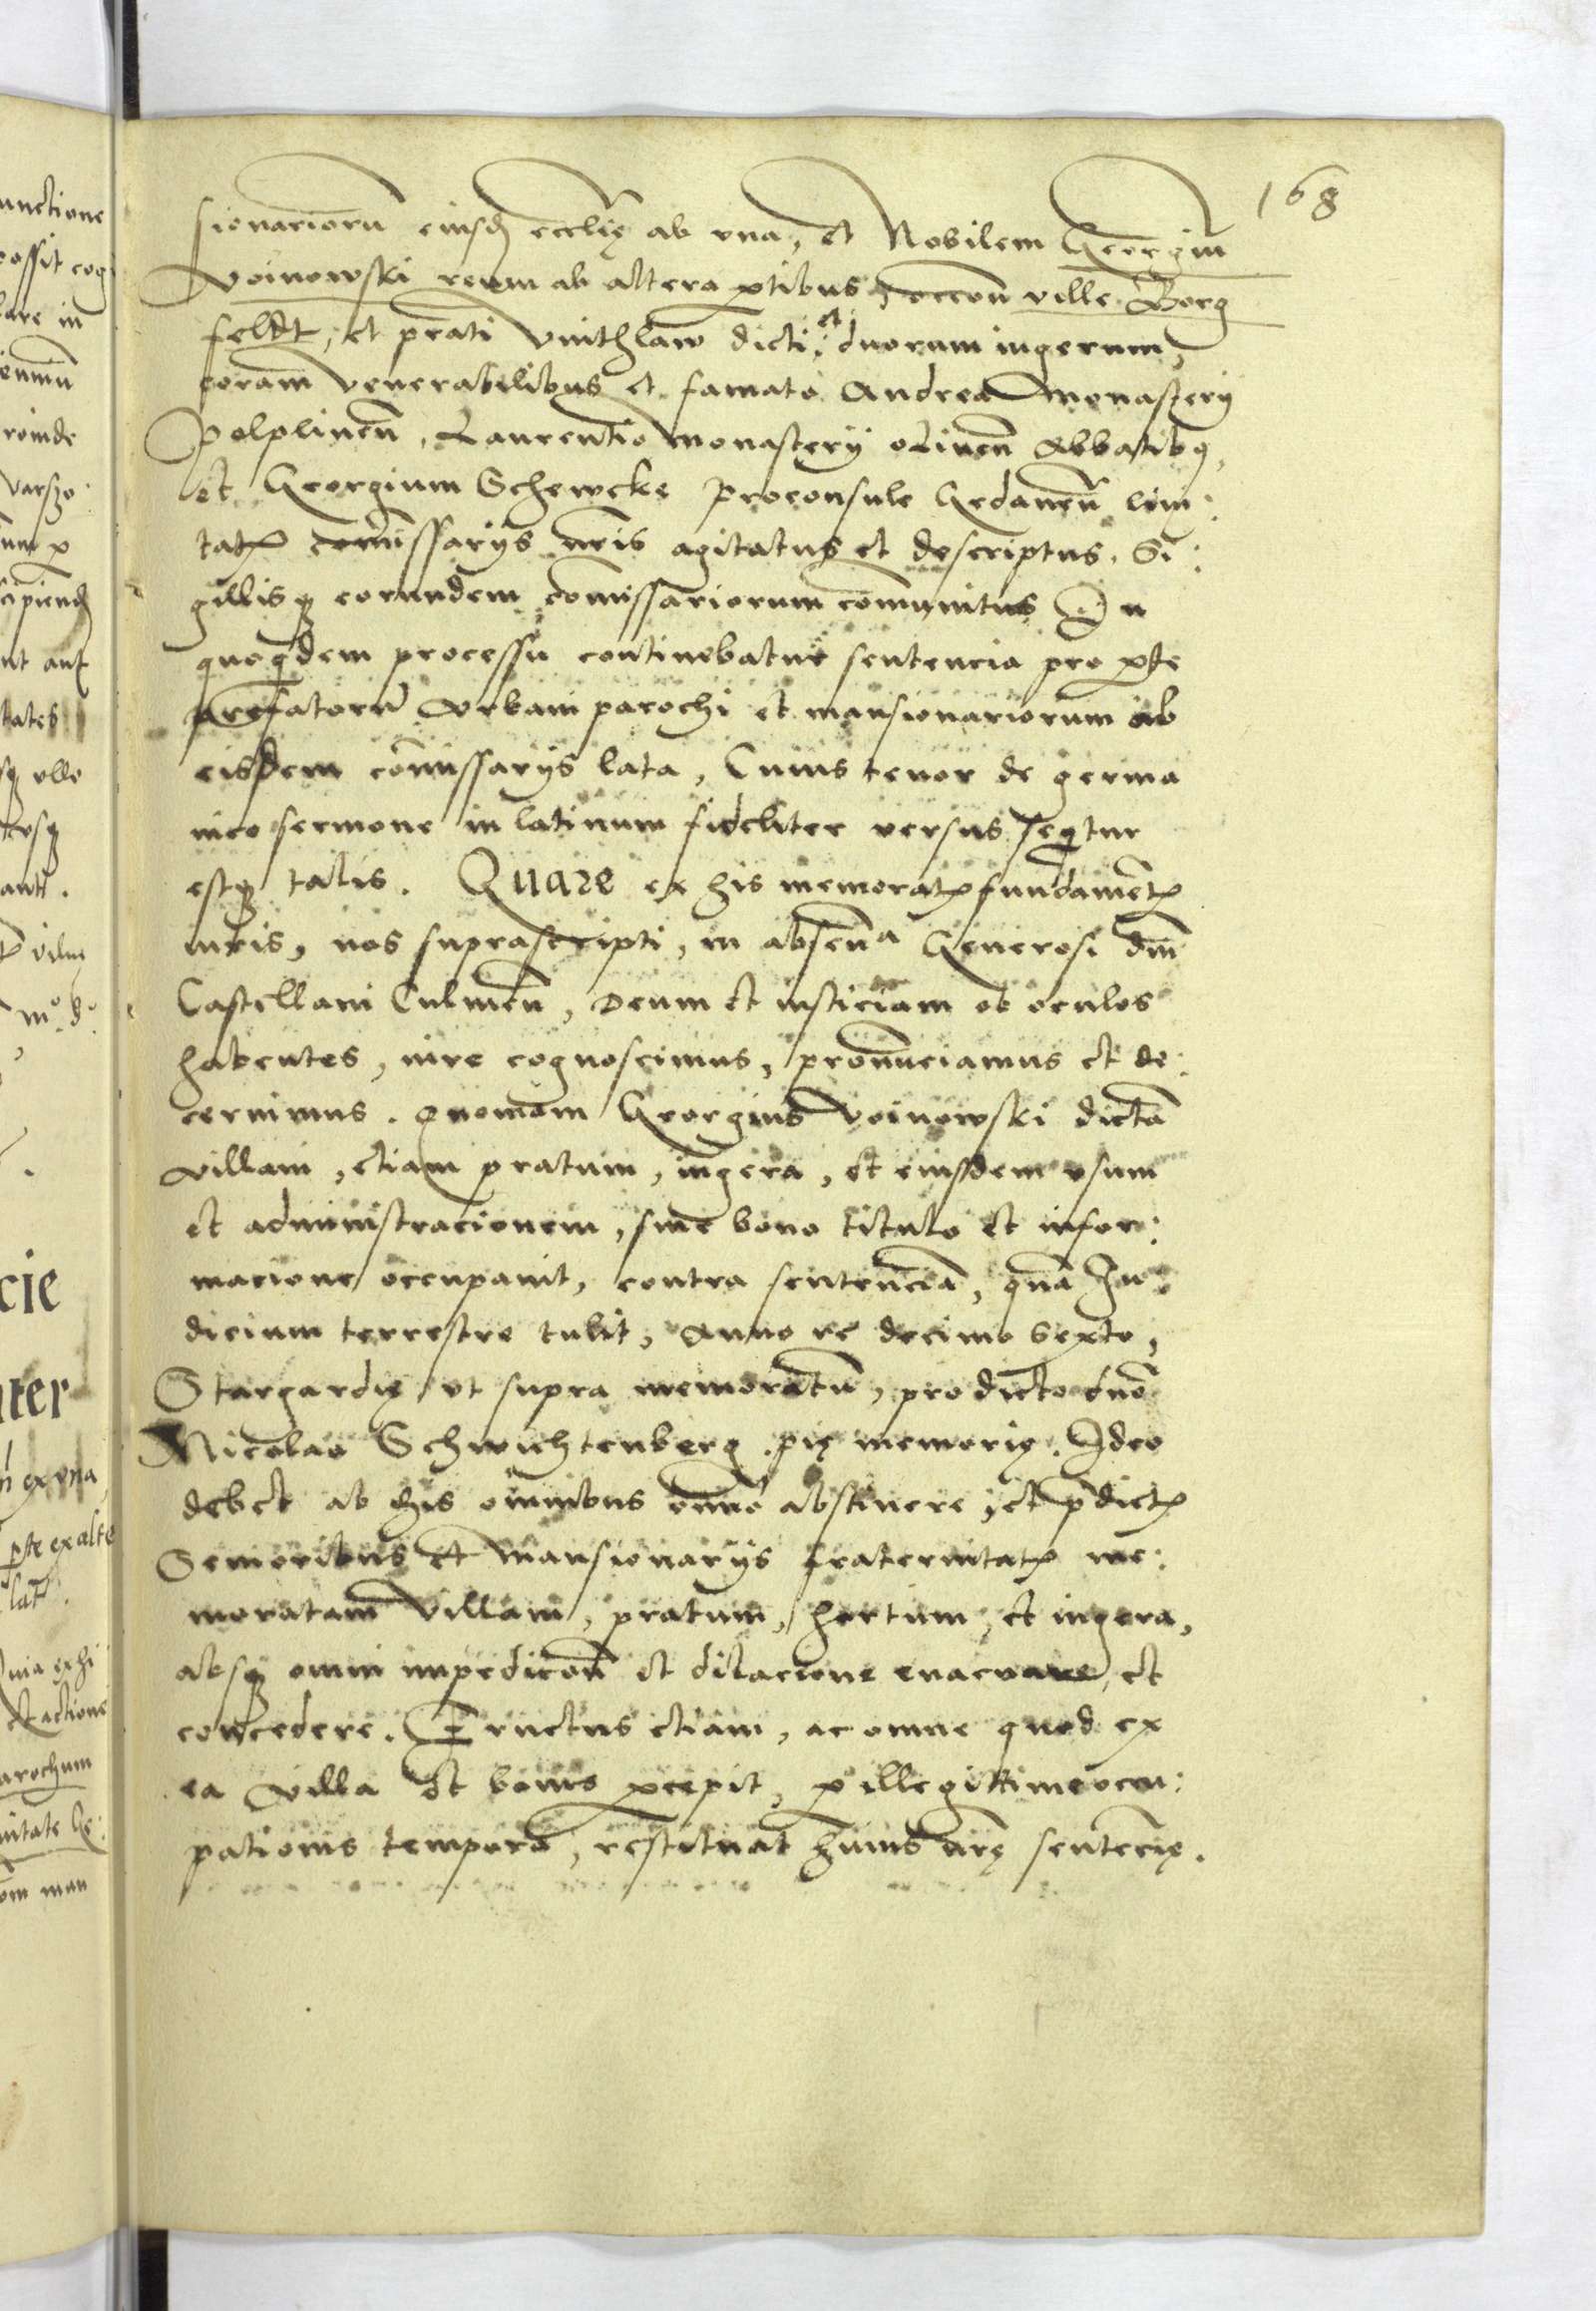 168
sionariorũ eiusd ecclię ab vna, et Nobilem Georgiũ
Voinowski reum ab altera ptibus, occoñ ville Borg
feldt, et prati Vnithlaw dicti, et duorum iugerum,
coram venerabilibus et famato Andrea Monasterij
Polplineñ, Laurentio Monasterij oliueñ Abbatibq,
et Georgium Schewcke Proconsule Gedaneñ limi:
tatꝫ comissarijs nris agitatus et descriptus. Si:
gillisqꝫ eorundem comissariorum comunitus In
quoqdem processu continebatur sentencia pro pte
prefatorũ Vrbani parochi et mansionariorum ab
eisdem comissarijs lata, Cuius tenor de germa
nico sermone in latinum fideliter versus seqtur
estqꝫ talis. Quare ex his memoratꝫ fundametꝫ
iuris, nos suprascripti, in absenᵃ Generosi dñi
Castellani Culmeñ, Deum et iusticiam ob oculos
habentes, iure cognoscimus, pronunciamus et de:
cernimus. Quoniam Georgius Voinowski dictã
villam, etiam pratum, iugera, et eiusdem vsum
et administracionem, sine bono titulo et infor:
macione occupauit, contra sentenciã, quã Iu:
dicium terrestre tulit, Anno re decimo sexto,
Stargardię vt supra memoratũ, pro dicto dno
Nicolao Schwichtenberg pię memorię. Ideo
debet ab his omnibus omnio abstinere, et pdictꝫ
Senioribus et Mansionarijs fraternitatꝫ me:
moratam villam, pratum, hortum, et iugera,
absqꝫ omni impedicoñ et dilacione euacuare, et
concedere. Fructus etiam, ac omne quod ex
ea villa et bonis pcepit, p illegittime occu:
pationis tempora, restituat huius nrę sentecię.